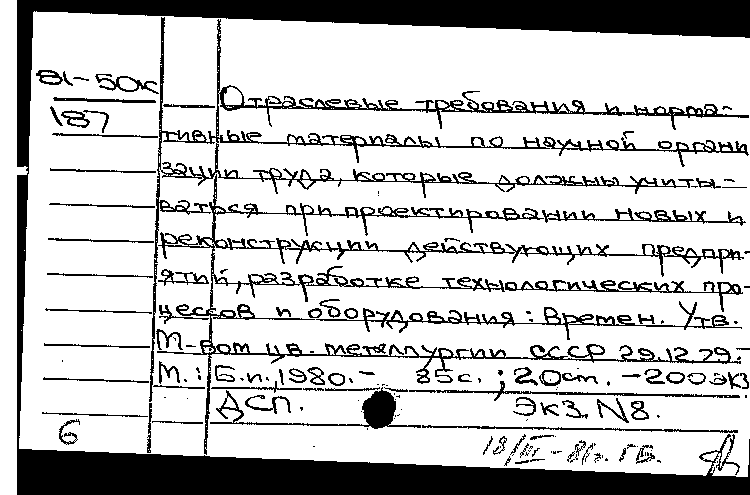 81-50к
187
Отраслевые требования и норма-
тивные материалы по научной органи
зации труда, которые должны учиты-
ваться при проектировании новых и
реконструкции действующих предпри-
ятий, разработке технологических про-
цессов и оборудования: Времен. Утв.
М-вом цв. металлургии СССР 29.12.79.-
М.: Б.и., 1980. - 85с.; 20см. - 200экз
ДСП. Экз. N8.
6
18/III-81г. ГВ.